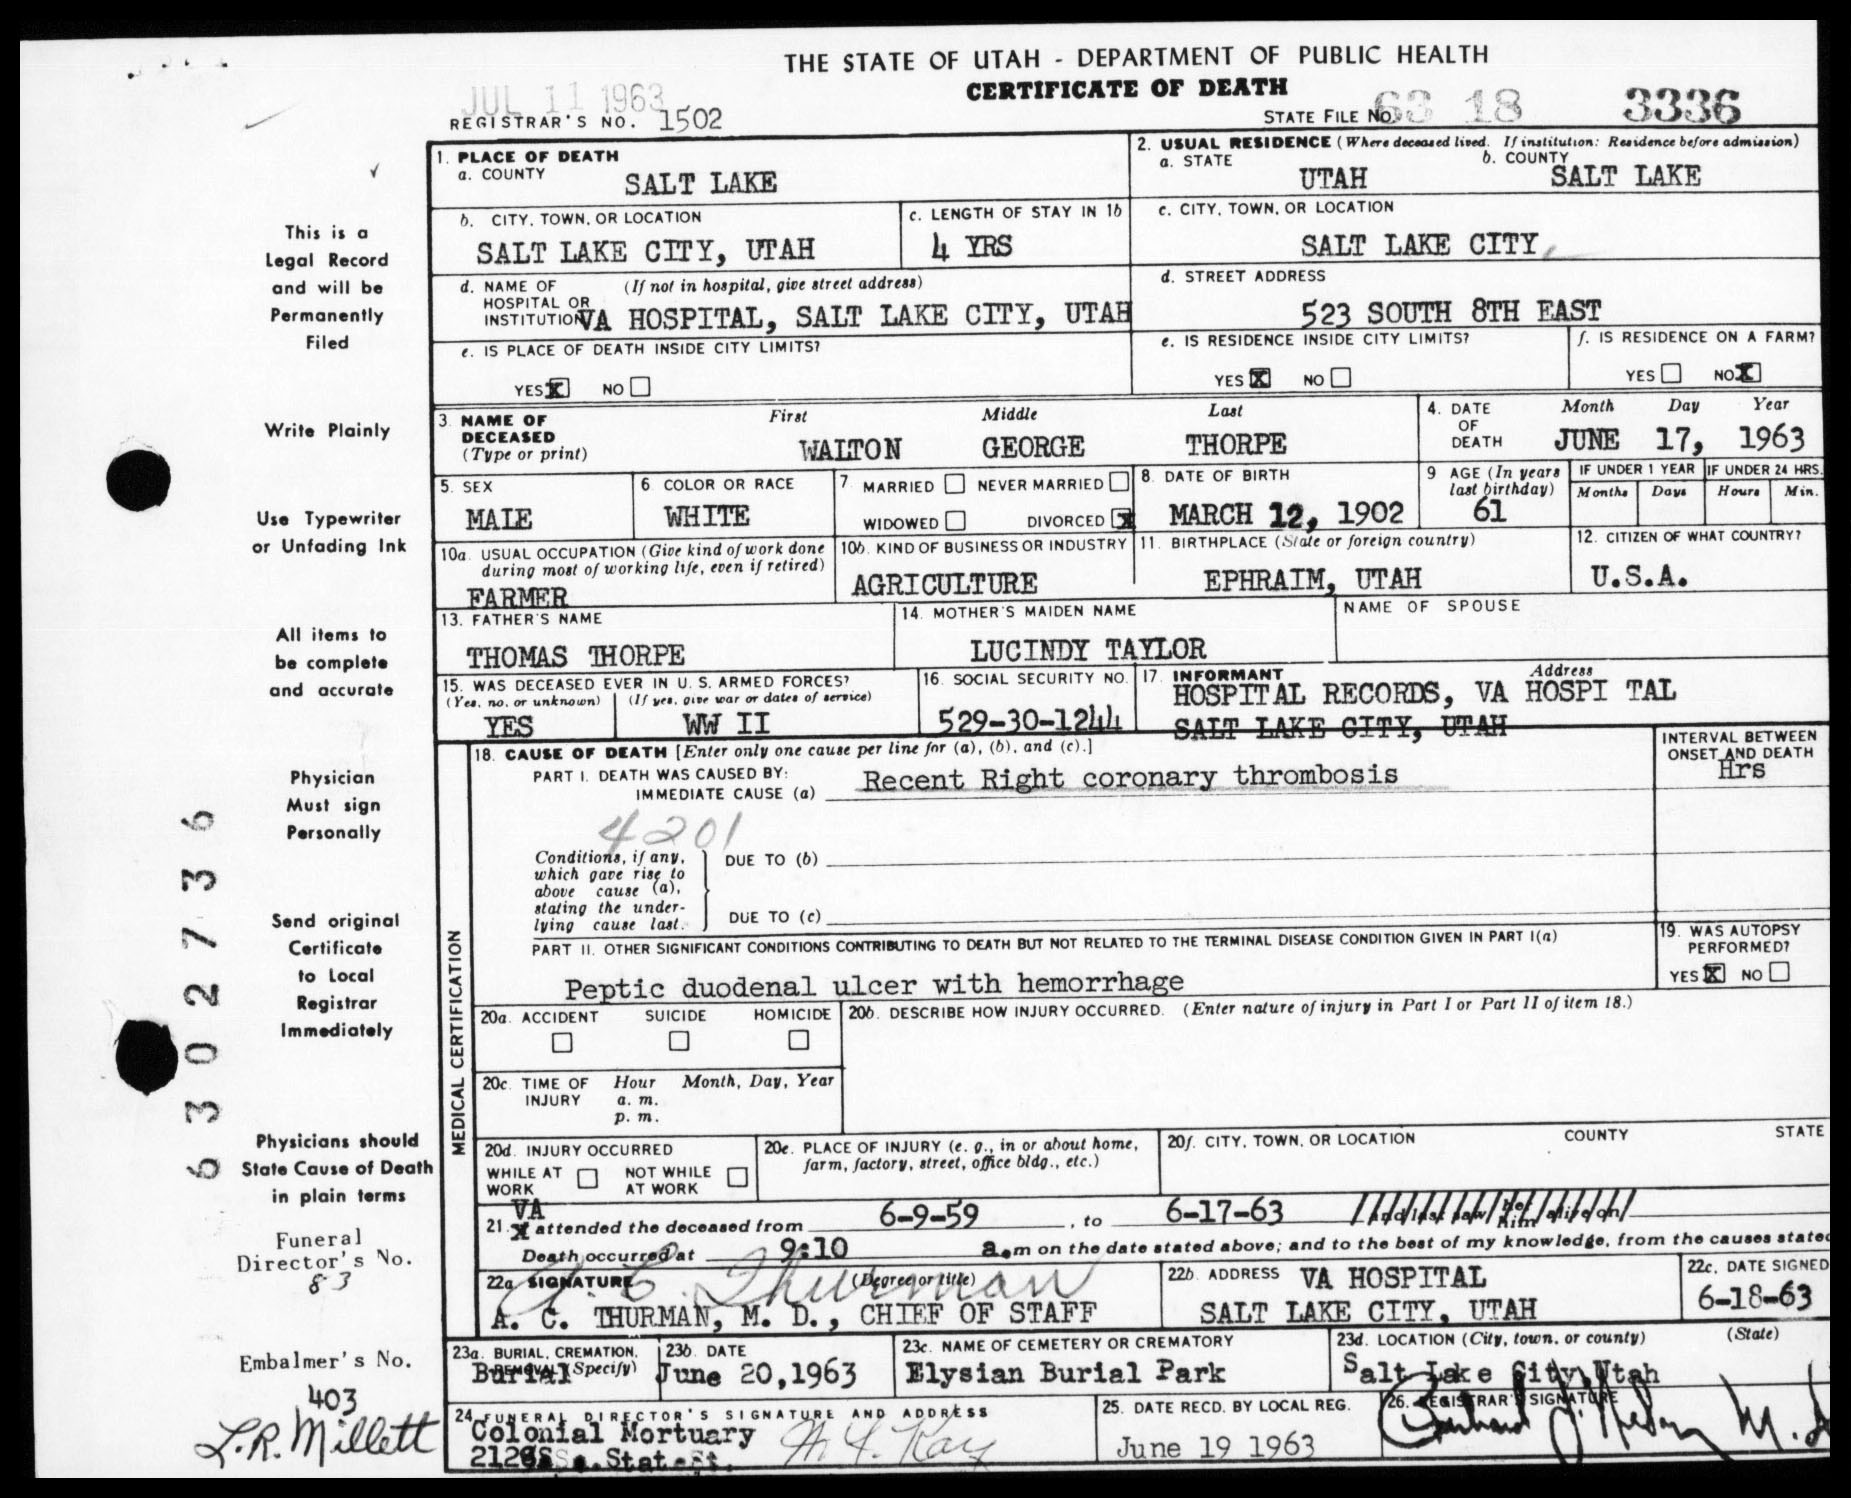 THE STATE OF UTAH - DEPARTMENT OF PUBLIC HEALTH
CERTIFICATE OF DEATH
JUL 11 1963
REGISTRAR'S NO. 1502
STATE FILE NO. 63 18 3336
1. PLACE OF DEATH
a. COUNTY SALT LAKE
2. USUAL RESIDENCE (Where deceased lived. If institution: Residence before admission)
a. STATE UTAH b. COUNTY SALT LAKE
b. CITY, TOWN, OR LOCATION SALT LAKE CITY, UTAH
c. LENGTH OF STAY IN 1b 4 YRS
c. CITY, TOWN, OR LOCATION SALT LAKE CITY,
d. NAME OF HOSPITAL OR INSTITUTION (If not in hospital, give street address) VA HOSPITAL, SALT LAKE CITY, UTAH
d. STREET ADDRESS 523 SOUTH 8TH EAST
e. IS PLACE OF DEATH INSIDE CITY LIMITS? YES X NO
e. IS RESIDENCE INSIDE CITY LIMITS? YES X NO
f. IS RESIDENCE ON A FARM? YES NO X
3. NAME OF DECEASED (Type or print)
First Middle Last
WALTON GEORGE THORPE
4. DATE OF DEATH Month Day Year
JUNE 17, 1963
5. SEX MALE
6. COLOR OR RACE WHITE
7. MARRIED NEVER MARRIED
WIDOWED DIVORCED X
8. DATE OF BIRTH MARCH 12, 1902
9 AGE (In years last birthday) 61
IF UNDER 1 YEAR Months Days
IF UNDER 24 HRS. Hours Min.
10a. USUAL OCCUPATION (Give kind of work done during most of working life, even if retired)
FARMER
10b. KIND OF BUSINESS OR INDUSTRY AGRICULTURE
11. BIRTHPLACE (State or foreign country) EPHRAIM, UTAH
12. CITIZEN OF WHAT COUNTRY? U.S.A.
13. FATHER'S NAME THOMAS THORPE
14. MOTHER'S MAIDEN NAME LUCINDY TAYLOR
NAME OF SPOUSE
15. WAS DECEASED EVER IN U. S. ARMED FORCES?
(Yes, no, or unknown) (If yes, give war or dates of service)
YES WW II
16. SOCIAL SECURITY NO. 529-30-1244
17. INFORMANT Address
HOSPITAL RECORDS, VA HOSPI TAL
SALT LAKE CITY, UTAH
MEDICAL CERTIFICATION
18. CAUSE OF DEATH [Enter only one cause per line for (a), (b), and (c).]
INTERVAL BETWEEN ONSET AND DEATH
PART I. DEATH WAS CAUSED BY:
IMMEDIATE CAUSE (a) Recent Right coronary thrombosis Hrs
4201
Conditions, if any, which gave rise to above cause (a), stating the underlying cause last.
DUE TO (b)
DUE TO (c)
PART II. OTHER SIGNIFICANT CONDITIONS CONTRIBUTING TO DEATH BUT NOT RELATED TO THE TERMINAL DISEASE CONDITION GIVEN IN PART I(a)
Peptic duodenal ulcer with hemorrhage
19. WAS AUTOPSY PERFORMED?
YES X NO
20a. ACCIDENT SUICIDE HOMICIDE
20b. DESCRIBE HOW INJURY OCCURRED. (Enter nature of injury in Part I or Part II of item 18.)
20c. TIME OF INJURY Hour Month, Day, Year
a. m.
p. m.
20d. INJURY OCCURRED
WHILE AT WORK NOT WHILE AT WORK
20e. PLACE OF INJURY (e. g., in or about home, farm, factory, street, office bldg., etc.)
20f. CITY, TOWN, OR LOCATION COUNTY STATE
VA
21. X attended the deceased from 6-9-59, to 6-17-63 And last saw her him alive on
Death occurred at 9:10 a.m on the date stated above; and to the best of my knowledge, from the causes stated
22a SIGNATURE (Degree or title)
A. C. Thurman
A. C. THURMAN, M. D., CHIEF OF STAFF
22b. ADDRESS VA HOSPITAL
SALT LAKE CITY, UTAH
22c. DATE SIGNED
6-18-63
23a. BURIAL, CREMATION, REMOVAL (Specify) Burial
23b. DATE June 20,1963
23c. NAME OF CEMETERY OR CREMATORY Elysian Burial Park
23d. LOCATION (City, town, or county) (State)
Salt Lake City, Utah
24. FUNERAL DIRECTOR'S SIGNATURE AND ADDRESS
Colonial Mortuary
25. DATE RECD. BY LOCAL REG.
June 19 1963
26. REGISTRAR'S SIGNATURE
This is a
Legal Record
and will be
Permanently
Filed
Write Plainly
Use Typewriter
or Unfading Ink
All items to
be complete
and accurate
Physician
Must sign
Personally
Send original
Certificate
to Local
Registrar
Immediately
Physicians should
State Cause of Death
in plain terms
Funeral
Director's No.
83
Embalmer's No.
403
L.R. Millett
6302736